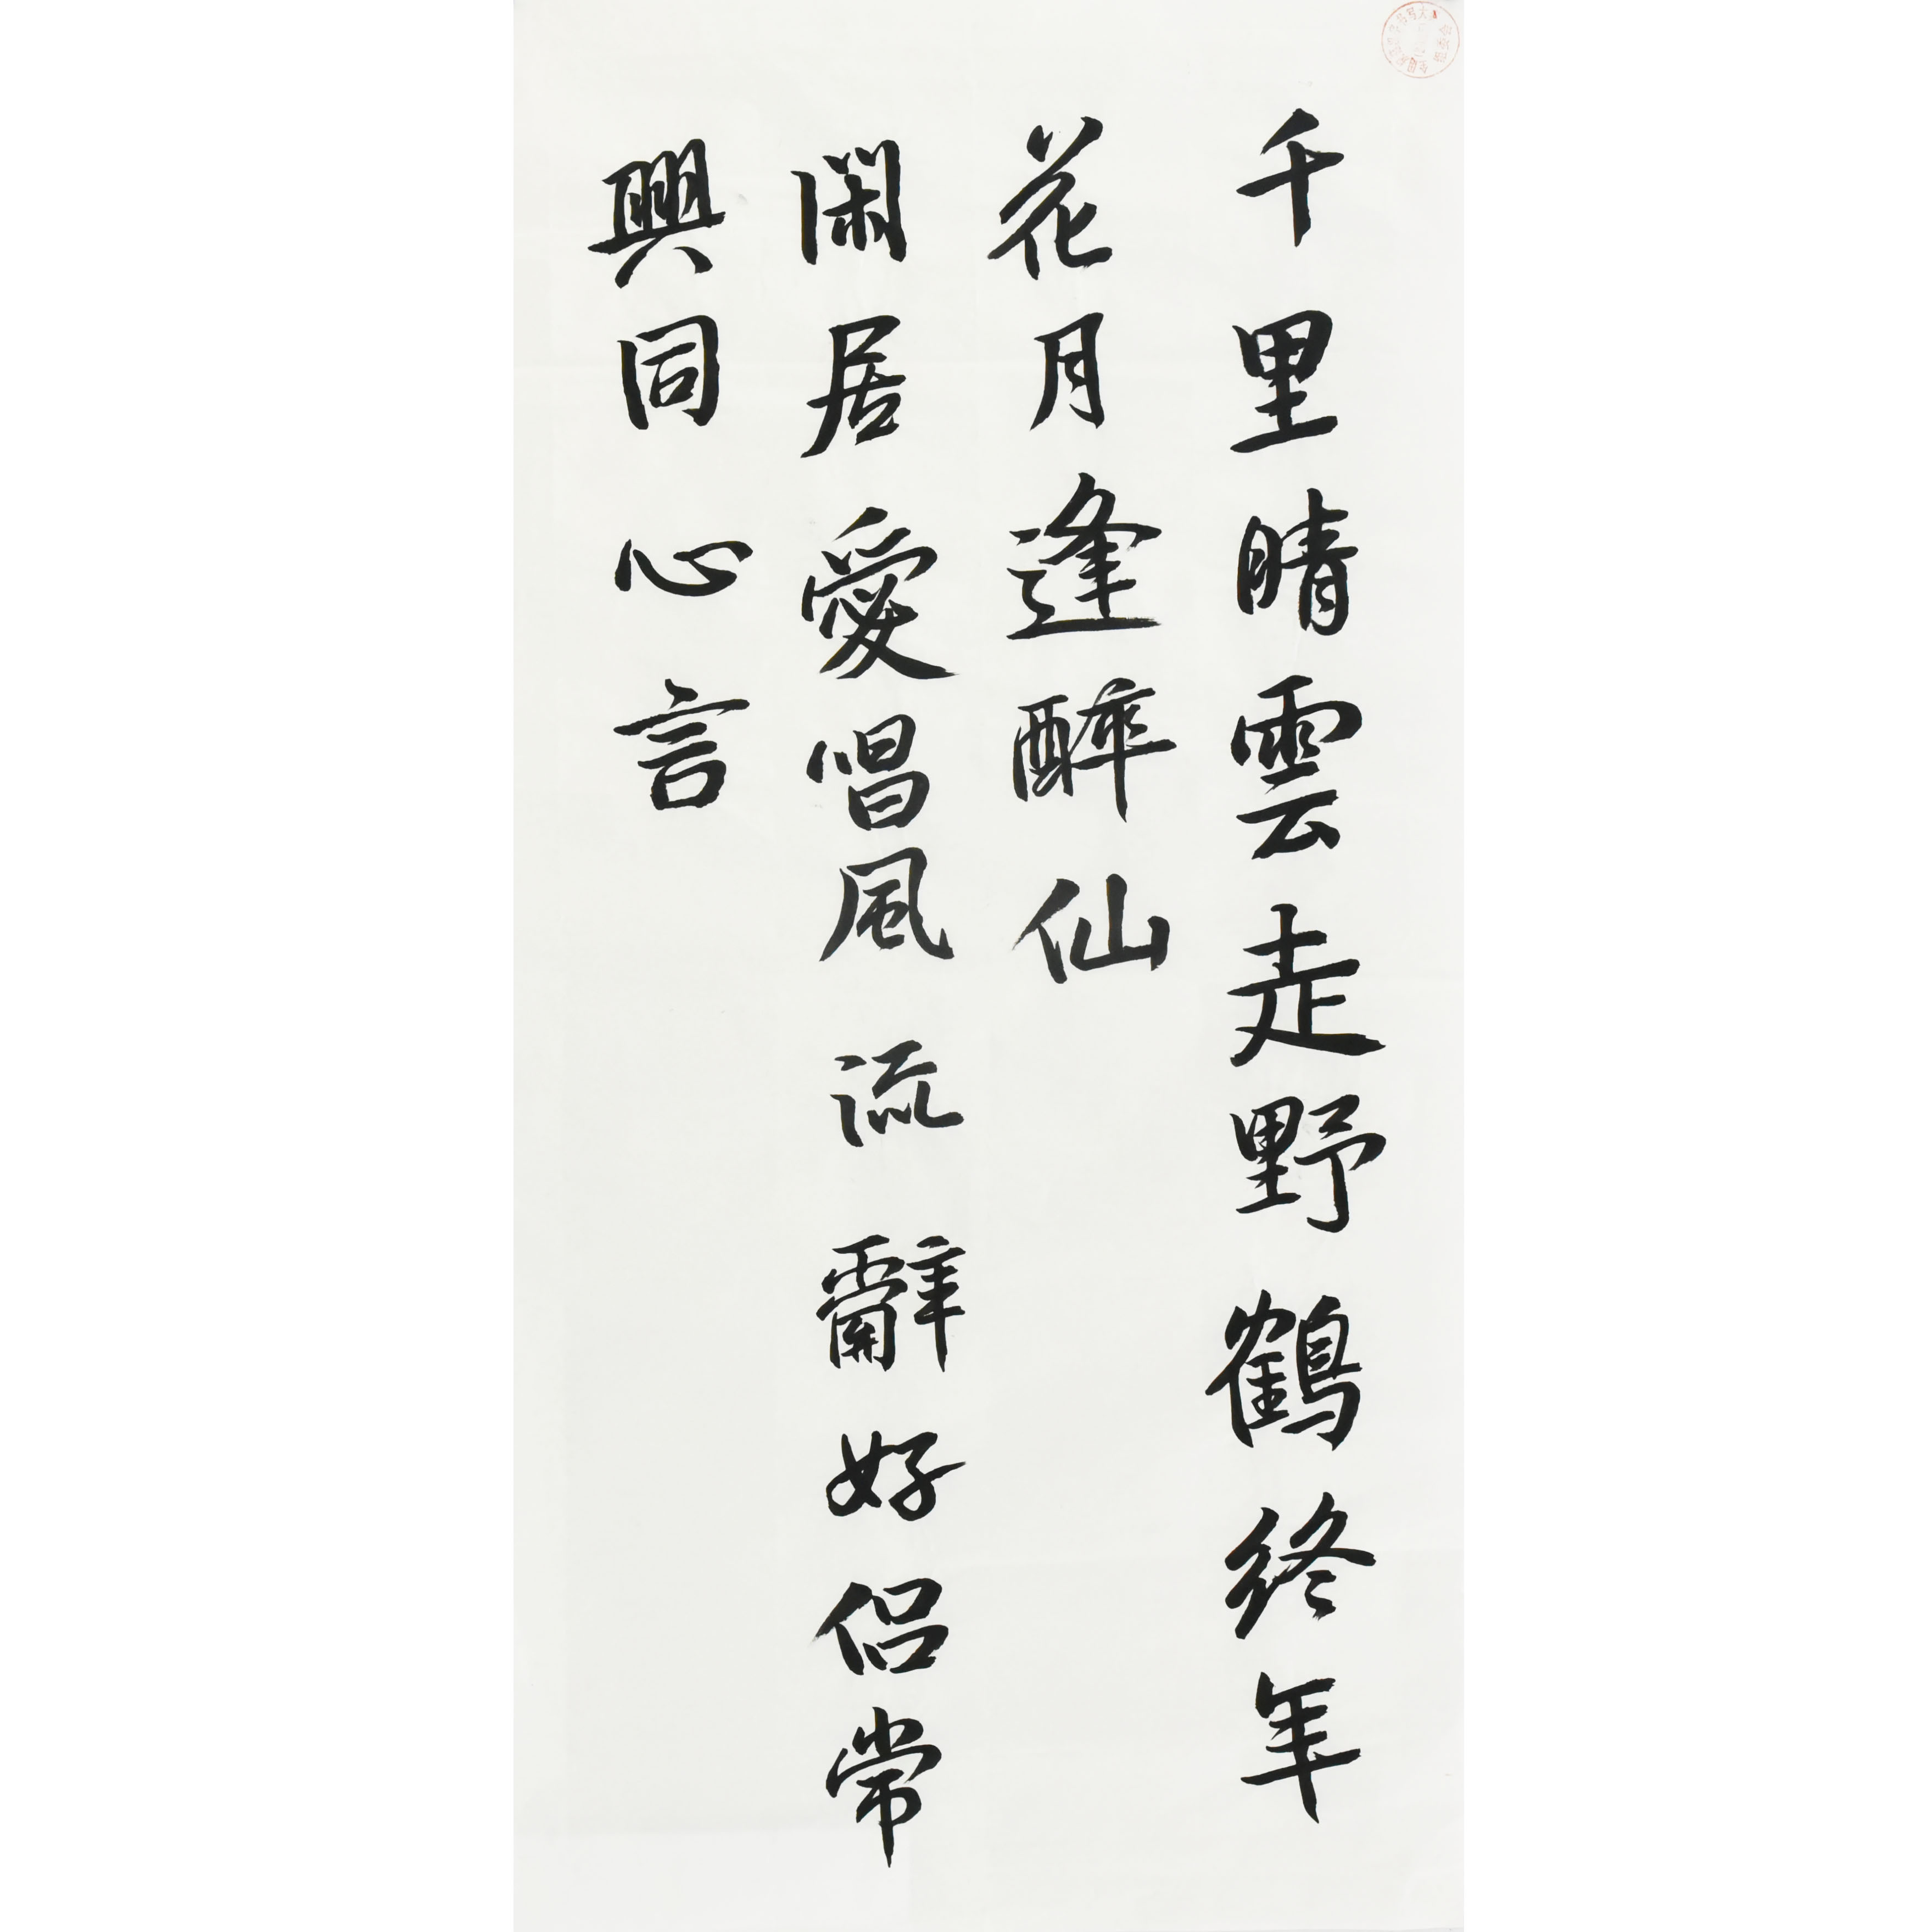 千里晴雲走野鶴終年
花月逢醉仙
閑居愛唱風流辭好侣常
興同心言